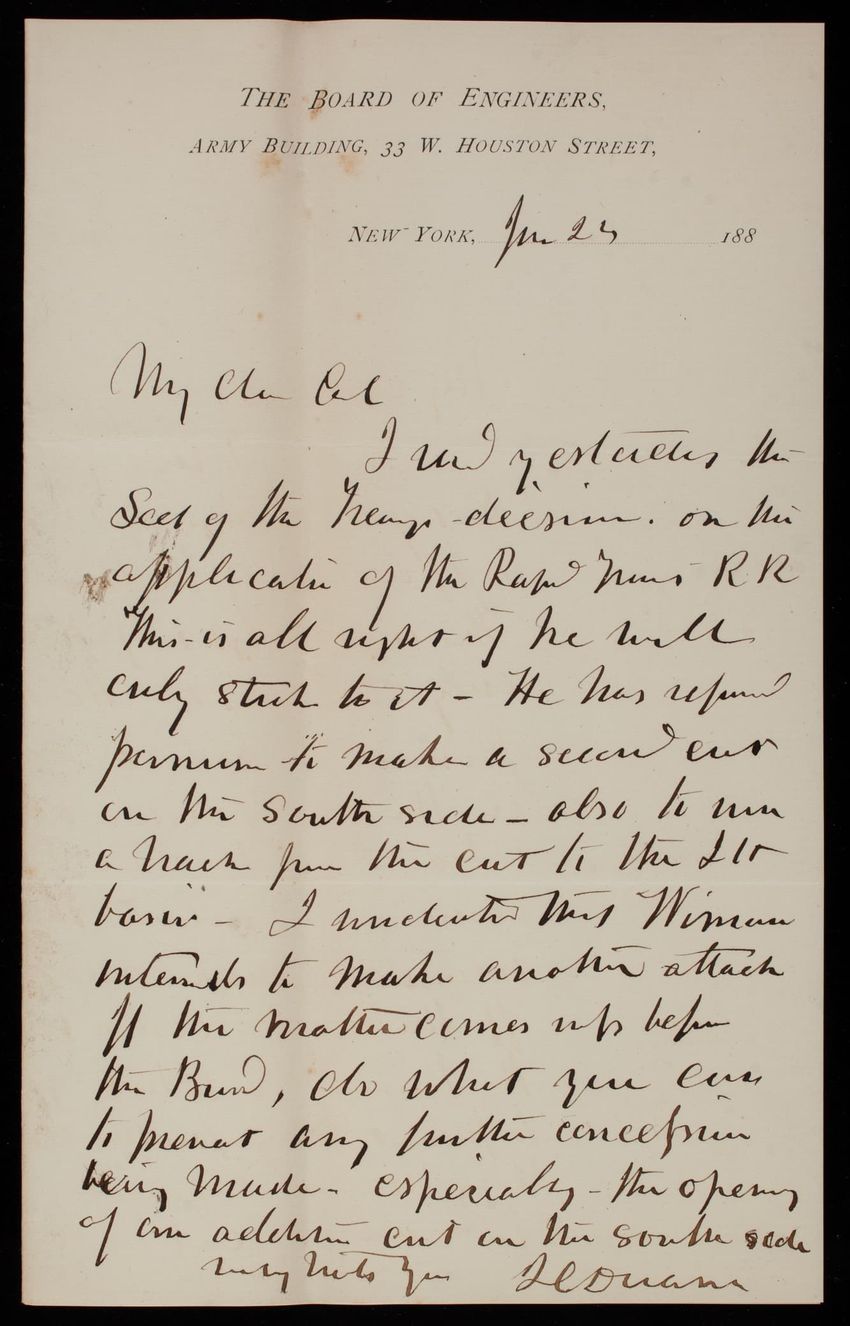 THE BOARD OF ENGINEERS,
ARMY BUILDING, 33 W. HOUSTON STREET,
NEW YORK, 188
My dear Col
I read yesterday the
Sect of the Treasys decision. on the
application of the Rapid Trans RR
This is all right if he will
only stick to it - He has refused
permission to make a second cut
on the south side - also to run
a track from the cut to the Lt
basin - I understand that Wiman
intends to make another attack
If the matter comes up before
the Board, do what you can
to prevent any further concession
being made - especially - the opening
of an addition cut on the south side
very truly yrs J C Duane